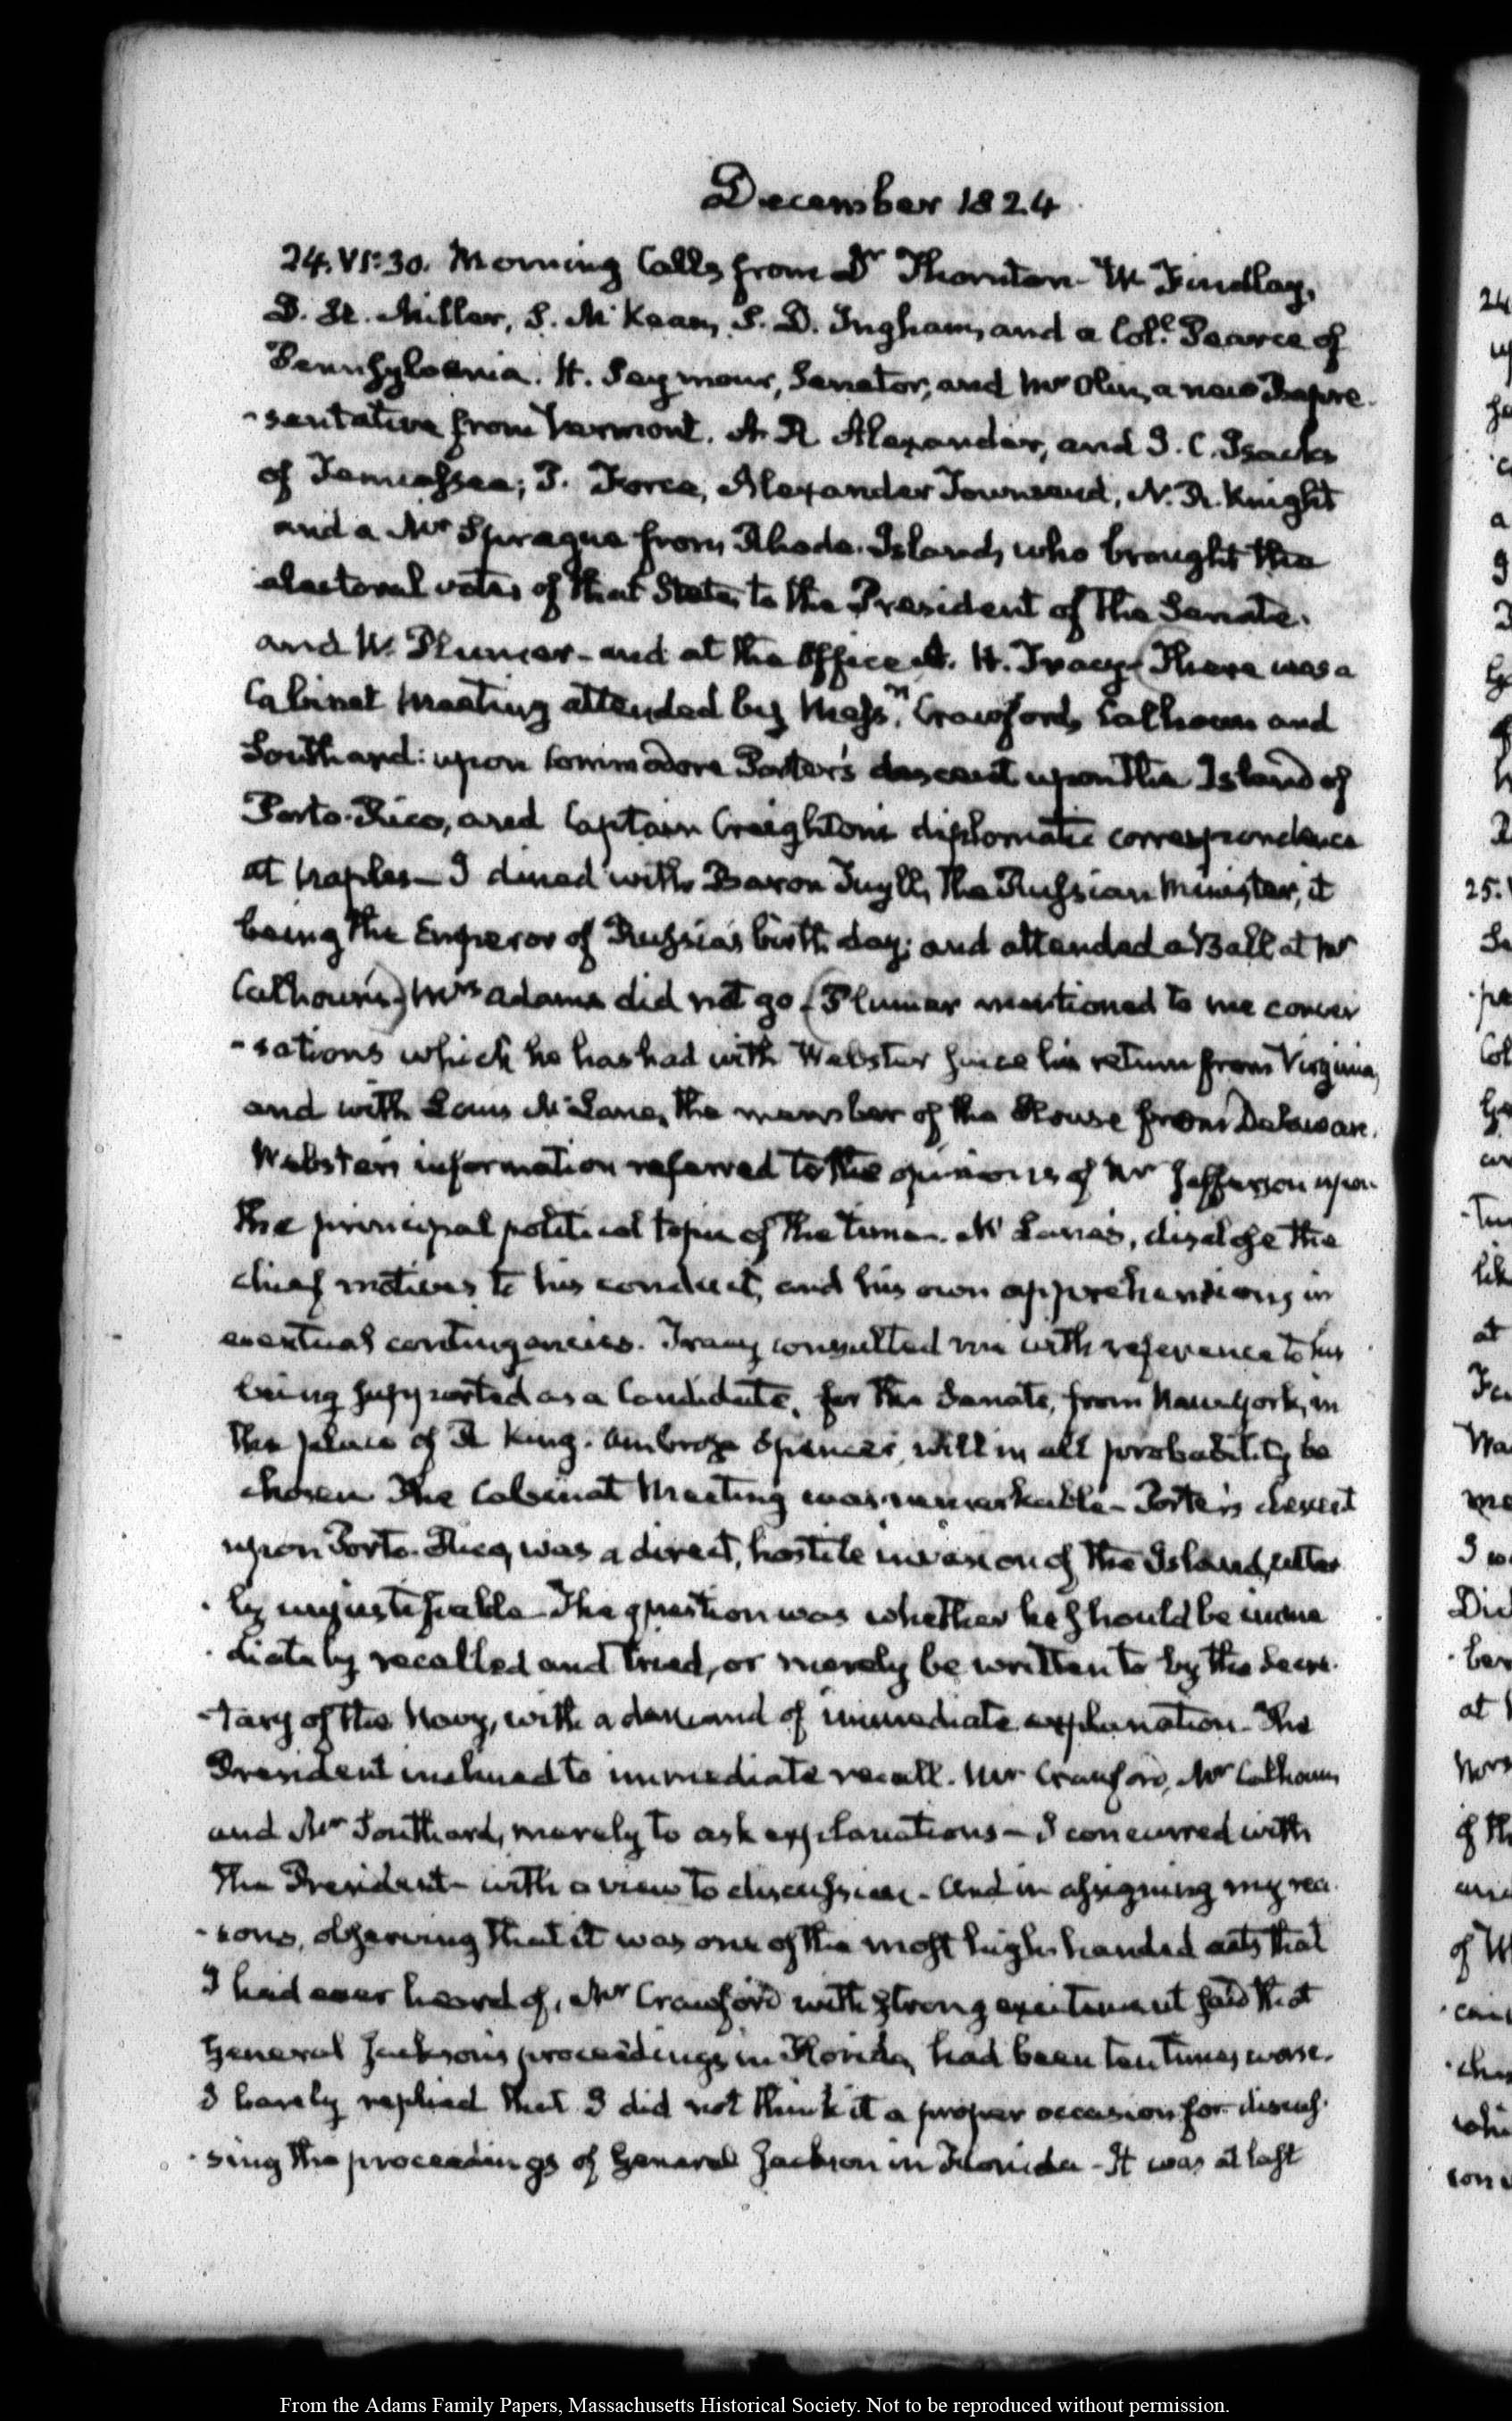 December 1824
24. VI:30. Morning Calls from Dr Thornton- W Findlay,
D. H. Miller, S. McKean, S. D. Ingham, and a Coll. Pearce of
Pennsylvania. H. Seymour, Senator, and Mr Olin, a new Repre-
-sentative from Vermont. A. R Alexander, and J. C. Isacks
of Tennessee; P. Force, Alexander Townsend, N. R. Knight
and a Mr Sprague from Rhode-Island, who brought the
electoral votes of that State, to the President of the Senate.
and W. Plumer- and at the Office A. H. Tracy- (There was a
Cabinet Meeting attended by Messrs. Crawford, Calhoun and
Southard: upon Commodore Porter's descent upon the Island of
Porto-Rico, and Captain Creighton's diplomatic correspondence
at Naples— I dined with Baron Tuyll, the Russian Minister, it
being the Emperor of Russia's birth day; and attended a Ball at Mr
Calhoun's.) Mrs Adams did not go. (Plumer mentioned to me conver
-sations which he has had with Webster since his return from Virginia,
and with Louis McLane, the member of the House from Delaware.
Webster's information referred to the opinions of Mr Jefferson upon
the principal political topic of the time. McLane's, disclose the
chief motives to his conduct, and his own apprehensions in
eventual contingencies. Tracy consulted me with reference to his
being supported as a Candidate, for the Senate, from New-York, in
the place of R King. Ambrose Spencer, will in all probability be
chosen. The Cabinet Meeting was remarkable- Porter's descent
upon Porto-Rico, was a direct, hostile invasion of the Island, utter
ly unjustifiable- The question was whether he should be imme
diately recalled and tried, or merely be written to by the Secre-
-tary of the Navy, with a demand of immediate explanation- The
President inclined to immediate recall. Mr Crawford, Mr Calhoun,
and Mr Southard, merely to ask explanations— I concurred with
the President- with a view to discussion- And in assigning my rea-
-sons, observing that it was one of the most high-handed acts that
I had ever heard of, Mr Crawford with strong excitement said that
General Jackson's proceedings in Florida, had been ten times worse.
I barely replied that I did not think it a proper occasion for discus-
-sing the proceedings of General Jackson in Florida- It was at last
From the Adams Family Papers, Massachusetts Historical Society. Not to be reproduced without permission.